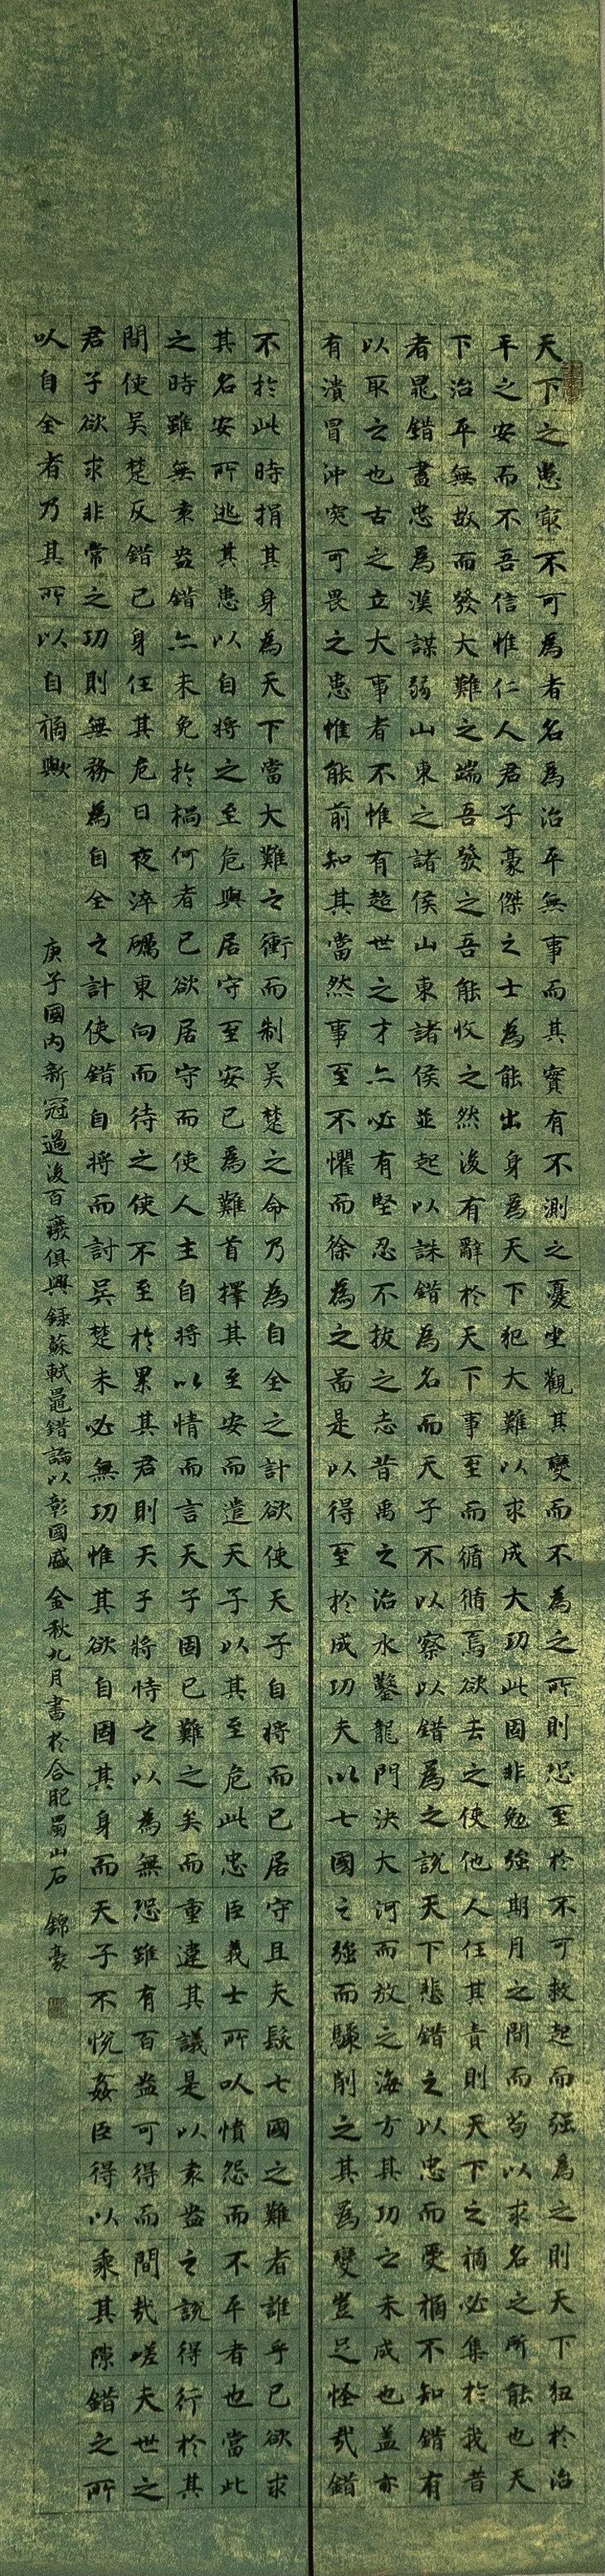 天下之患最不可為者名為治平無事而其實有不測之憂坐觀其變而不為之所則恐至於不可救起而強為之則天下狃於治
平之安而不吾信惟仁人君子豪傑之士為能出身為天下犯大難以求成大功此固非勉強期月之間而苟以求名之所能也天
下治平無故而發大難之端吾發之吾能收之然後有辭於天下事至而循循焉欲去之使他人任其責則天下之禍必集於我昔
者晁錯盡忠為漢謀弱山東之諸侯山東諸侯並起以誅錯為名而天子不以察以錯為之說天下悲錯之以忠而受禍不知錯有
以取之也古之立大事者不惟有超世之才亦必有堅忍不拔之志昔禹之治水鑿龍門決大河而放之海方其功之未成也蓋亦
有潰冒沖突可畏之患惟能前知其當然事至不懼而徐為之圖是以得至於成功夫以七國之強而驟削之其為變豈足怪哉錯
不於此時捐其身為天下當大難之衝而制吳楚之命乃為自全之計欲使天子自將而已居守且夫發七國之難者誰乎已欲求
其名安所逃其患以自將之至危與居守至安已為難首擇其至安而遣天子以其至危此忠臣義士所以憤怨而不平者也當此
之時雖無袁盎錯亦未免於禍何者已欲居守而使人主自將以情而言天子固已難之矣而重違其議是以袁盎之說得行於其
間使吳楚反錯已身任其危日夜淬礪東向而待之使不至於累其君則天子將恃之以為無恐雖有百盎可得而間哉嗟夫世之
君子欲求非常之功則無務為自全之計使錯自將而討吳楚未必無功惟其欲自固其身而天子不悅姦臣得以乘其隙錯之所
以自全者乃其所以自禍歟
庚子國內新冠過後百廢俱興錄蘇軾鼂錯論以彰國盛 金秋九月書於合肥蜀山石 錦豪